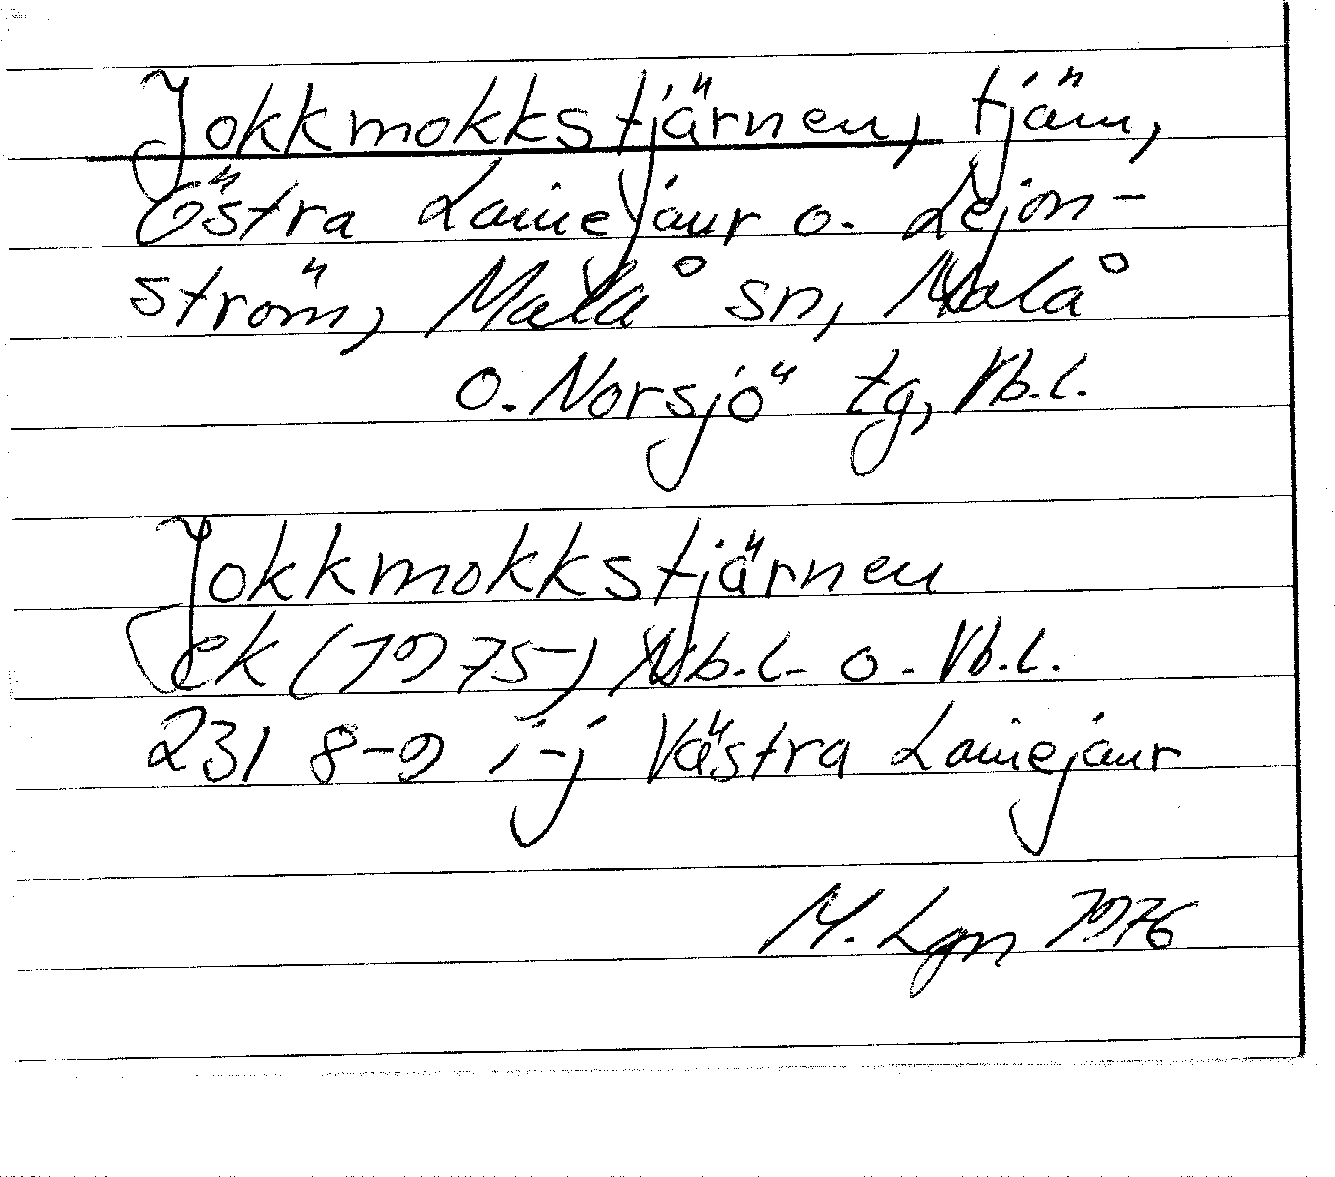 Jokkmokkstjärnen, tjärn,
Östra Lainejaur o. Lejon-
ström, Malå sn, Malå
o. Norsjö tg, Vb.l.
Jokkmokkstjärnen
ek (1975) Nb.l. o. Vb.l.
231 8-9 i-j Västra Lainejaur
M. Lgn 1976